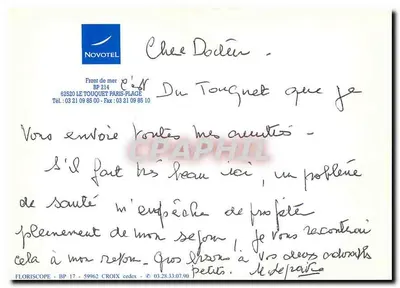 NOVOTEL
Cher Docteur -
Front de mer
BP 214
62520 LE TOUQUET PARIS-PLAGE
Tél : 03 21 09 85 00 - Fax : 03 21 09 85 10
c'est Du Touquet que je
Vous envoie toutes mes amitiés -
CPAPHIL
S'il fait très beau ici, un problème
de santé m'empêche de profiter
pleinement de mon séjour, je vous raconterai
cela à mon retour - Gros bisous à vos deux adorables
petits.
FLORISCOPE - BP 17 - 59962 CROIX cedex - © 03.28.33.07.90